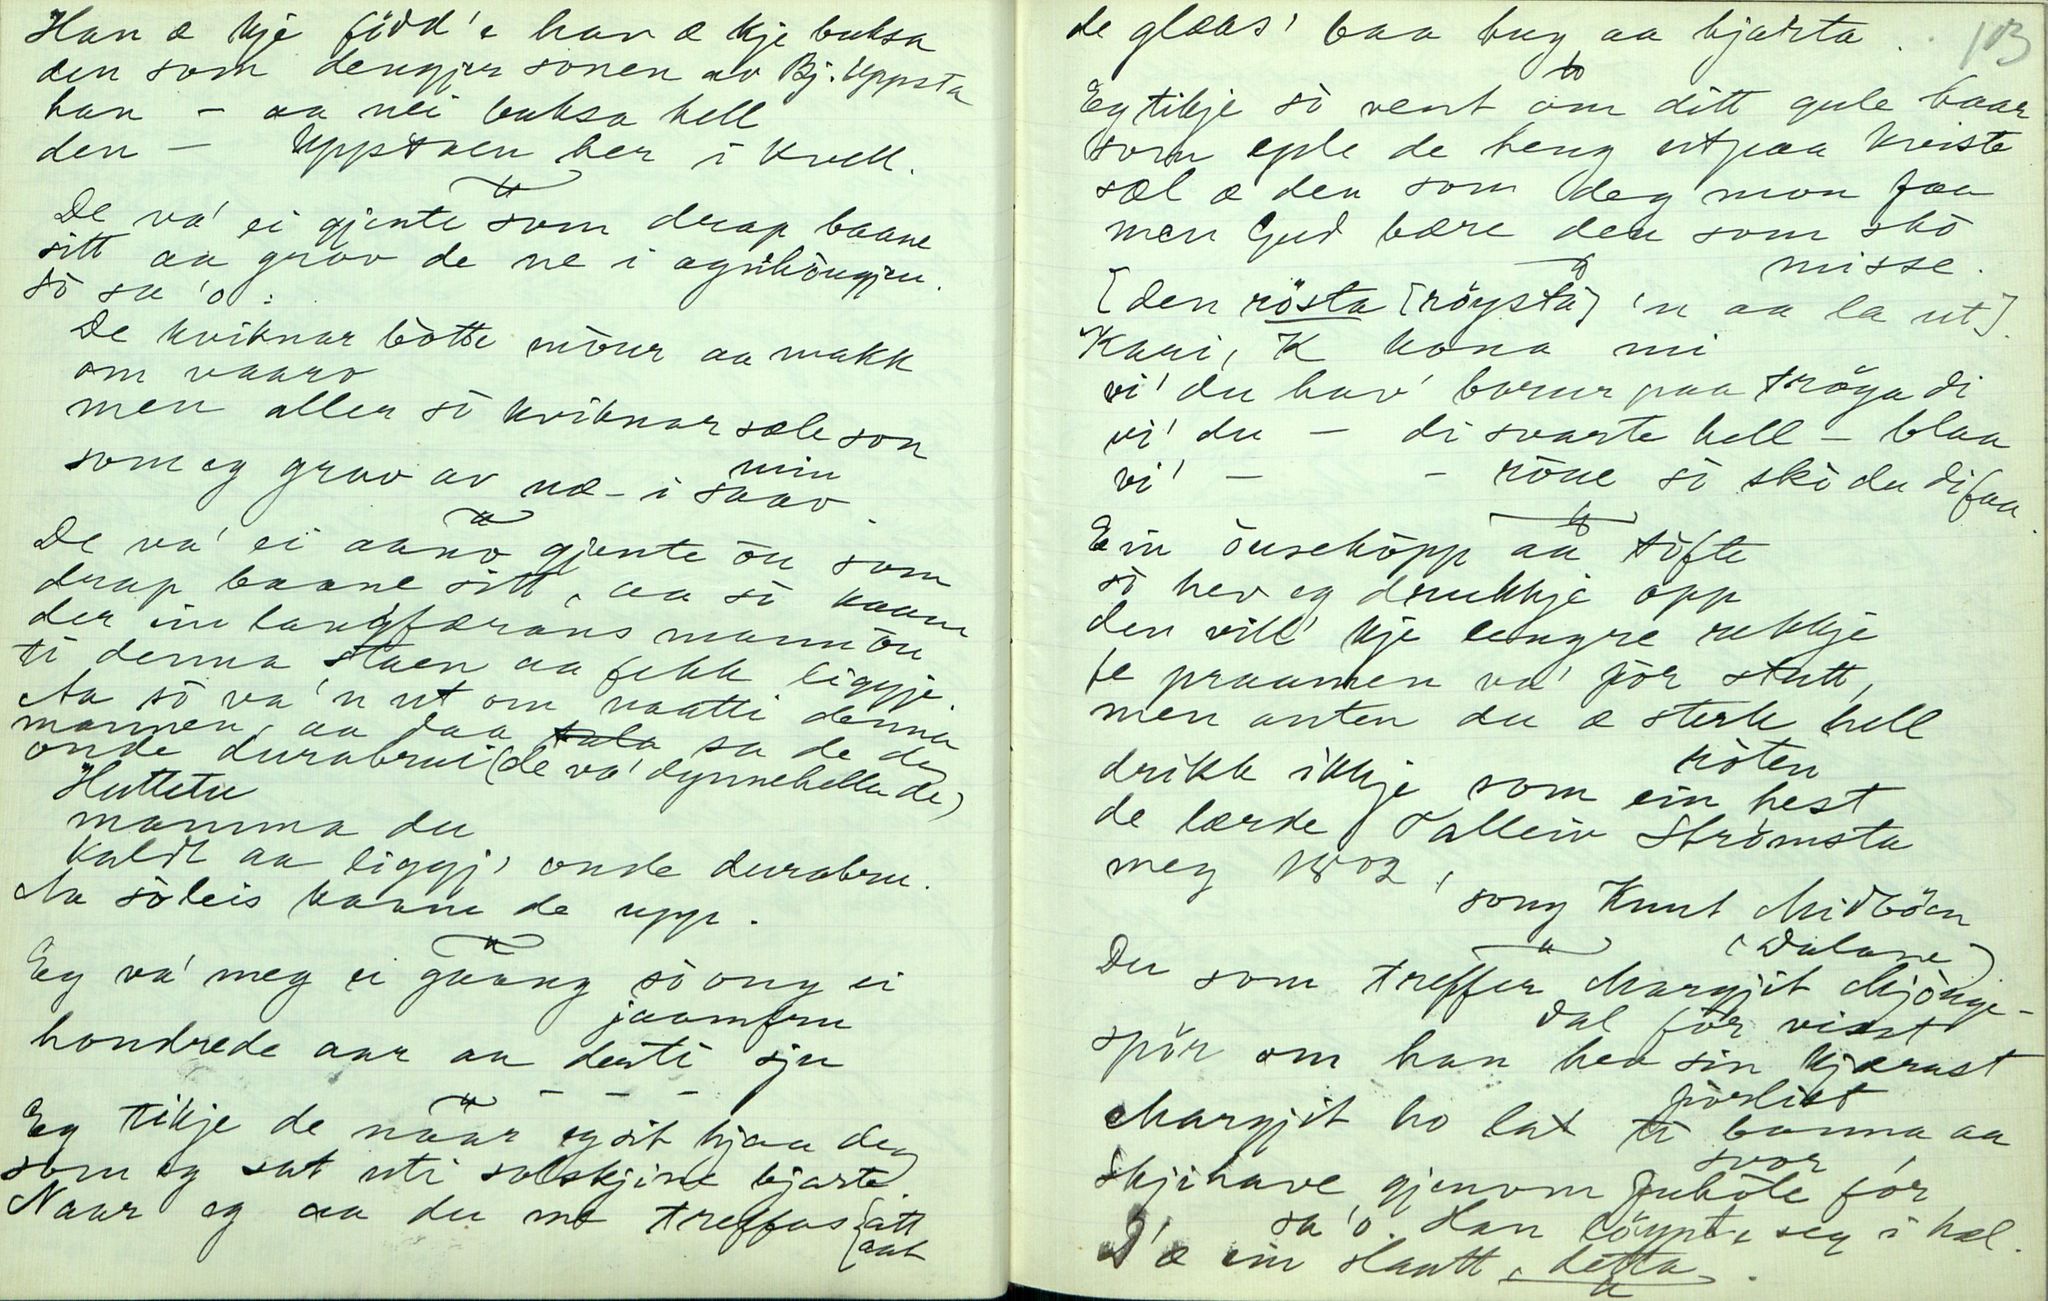 Han æ kje född'e han æ kje buksa
den som dengjer sonen av Bj. Uppsta
han – aa nei buksa hell
den – Uppstaen her i kvell.
De va' ei gjente som drap baane
sitt aa grov de ne i agnhöugjen.
sò sa 'o:
De kviknar bòtte möur aa makk
om vaaro
men aller sò kviknar sæle son
min
som eg grov av næ- i saao.
De va' ei aano gjente òu som
drap baane sitt, aa sò kaam
der ein langfærans mann òu
ti denna staen aa fekk liggje.
Aa sò va 'n ut om naatti denna
mannen, aa daa sa de de
onde durabrui (de va' dynnehella de)
Huttetu
mamma du
kaldt aa liggj' onde durabru.
Aa sòleis kaam de upp.
Eg va' meg ei gaang sò ong ei
jaamfru
hondrede aar aa desti sju
– – –
Eg tikje de naar eg sit hjaa deg
som eg sat uti solskjine bjarte
Naar eg aa du mo treffas att
aat
de glæas' baa hug aa hjarta.
103
Eg tikje sò vent om ditt gule haar
som eple de heng utpaa kviste
sæl æ den som deg mon faa
men Gud bære den som skò
misse.
[den rösta [röysta] 'n aa la ut].
Kari, K kona mi
vi' du hav' borur paa tröya di
vi' du – di svarte hell – blaa
vi' – – röue sò skò du di faa.
Ein öusekòpp aa tòfte
sò hev eg drukkje opp
den vill' kje lengre rekkje
fe praamen va' fòr stutt,
men anten du æ sterk hell
ròten
drikk ikkje som ein hest
de lærde Talleiv Strömsta
meg 1802,
song Knut Midböen
(Dalane)
Du som treffer Margjit Mjònge-
dal fòr visst
spör om han hev sin kjærast
fòrlist
Margjit ho lat ti banna aa
svor
Skjihave gjenom fuhòle fór
sa 'o. Han löypte seg i hæl.
D'æ ein slaatt, detta.